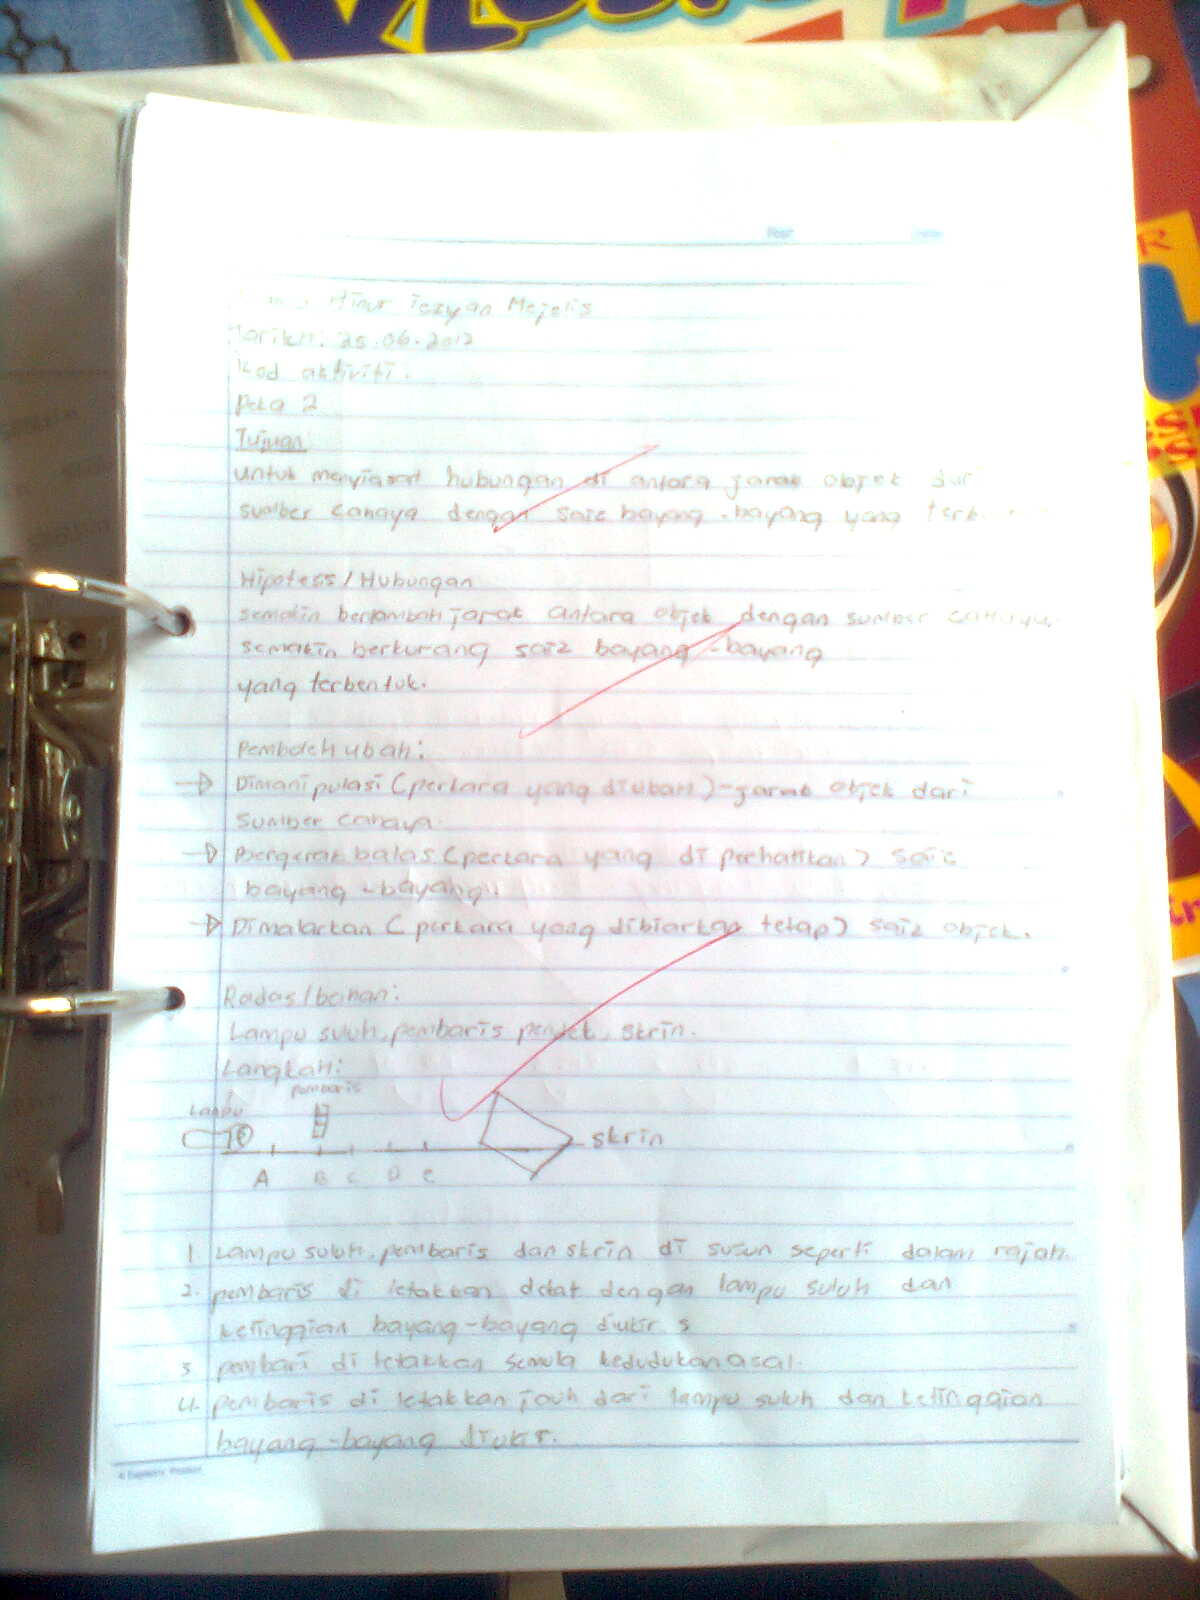 Tezyan Mejelis
Tarikh: 25.06.2012
Kod aktiviti:
Peka 2
Tujuan
untuk menyiasat hubungan di antara jarak objek dari
sumber cahaya dengan saiz bayang-bayang yang
Hipotess/Hubungan
semakin bertambah jarak antara objek dengan sumber cahaya,
semakin berkurang saiz bayang-bayang
yang terbentuk.
Pembolehubah:
→ Dimanipulasi (perkara yang diubah) - jarak objek dari
sumber cahaya.
→ Bergerak balas (perkara yang di perhatikan) saiz
bayang-bayang.
→ Dimalarkan (perkara yang dibiarkan tetap) saiz objek.
Radas/bahan:
Lampu suluh, pembaris pendek, skrin.
Langkah:
pembaris
Lampu
skrin
A B C D E
1. Lampu suluh, pembaris dan skrin di susun seperti dalam rajah.
2. pembaris di letakkan dekat dengan lampu suluh dan
ketinggian bayang-bayang diukir s
3 pembari di letakkan semula kedudukan asal.
4. pembaris di letakkan jauh dari lampu suluh dan ketinggian
bayang-bayang diukir.